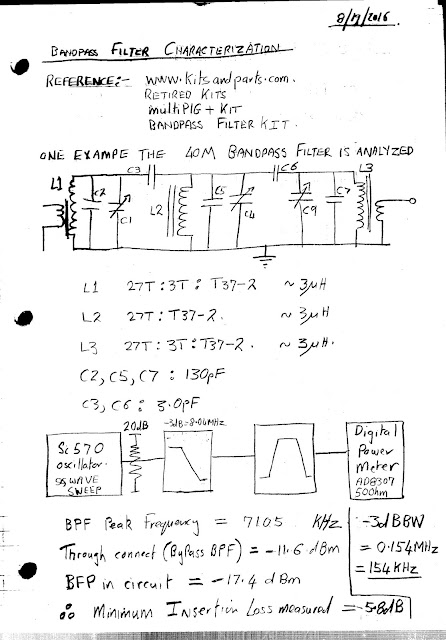 8/7/2016.
BANDPASS FILTER CHARACTERIZATION
REFERENCE:- www.kitsandparts.com.
RETIRED KITS
multiPIG + KIT
BANDPASS FILTER KIT.
ONE EXAMPE THE 40M BANDPASS FILTER IS ANALYZED
L1 C2 C1 C3 L2 C5 C4 C6 C9 C7 L3
L1 27T:3T: T37-2 ~3μH
L2 27T:T37-2. ~3μH
L3 27T:3T:T37-2. ~3μH.
C2, C5, C7 : 130pF
C3, C6 : 3.0pF
20dB
-3dB=8.04MHz
Si570
oscillator
SQ WAVE
SWEEP
Digital
Power
Meter
AD8307
50Ohm
BPF Peak Frequency = 7105 KHz
Through connect (Bypass BPF) = -11.6 dBm
BFP in circuit = -17.4 dBm
∴ Minimum Insertion Loss measured = -5.8dB
-3dBBW
= 0.154MHz
= 154KHz